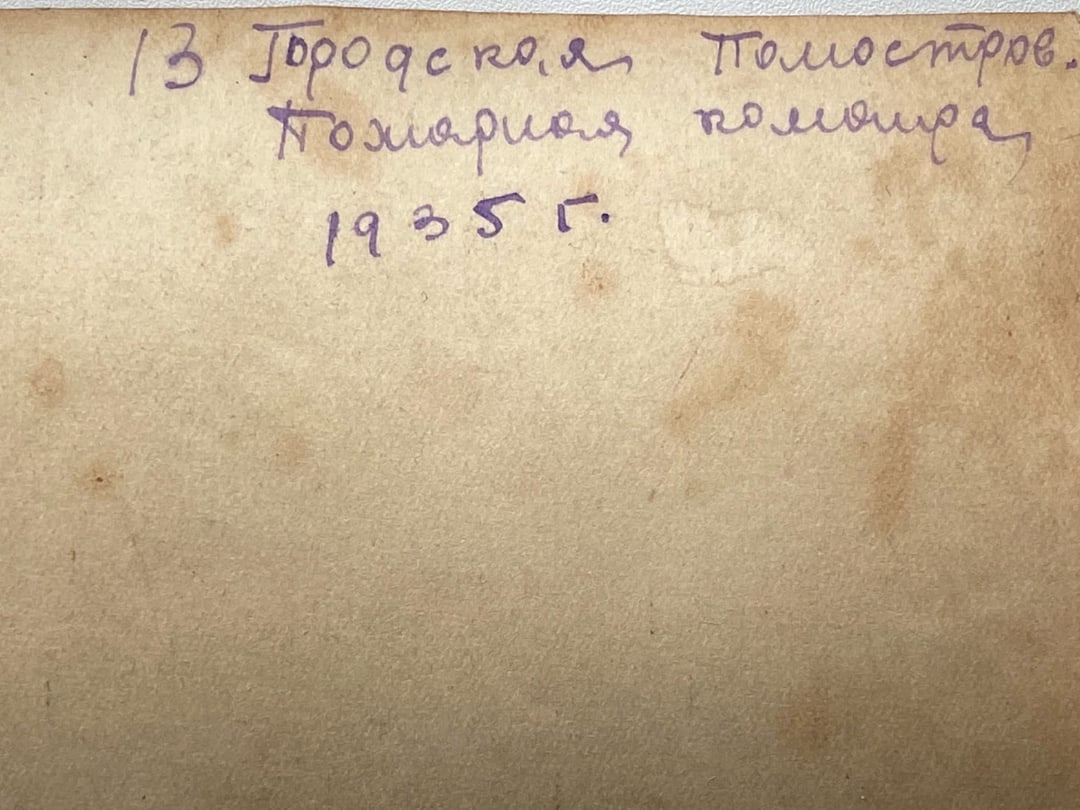 13 Городская Помостров.
Пожарная команда
1935 г.